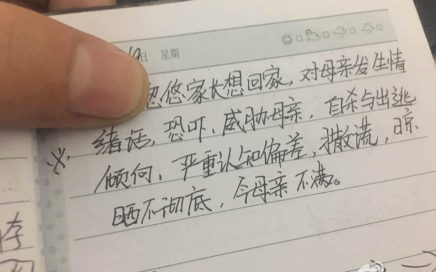 日 星期
忽悠家长想回家,对母亲发生情
※ 绪话,恐吓、威胁母亲,自杀与出逃
倾向,严重认知偏差,撒谎,晾
晒不彻底,令母亲不满。
存